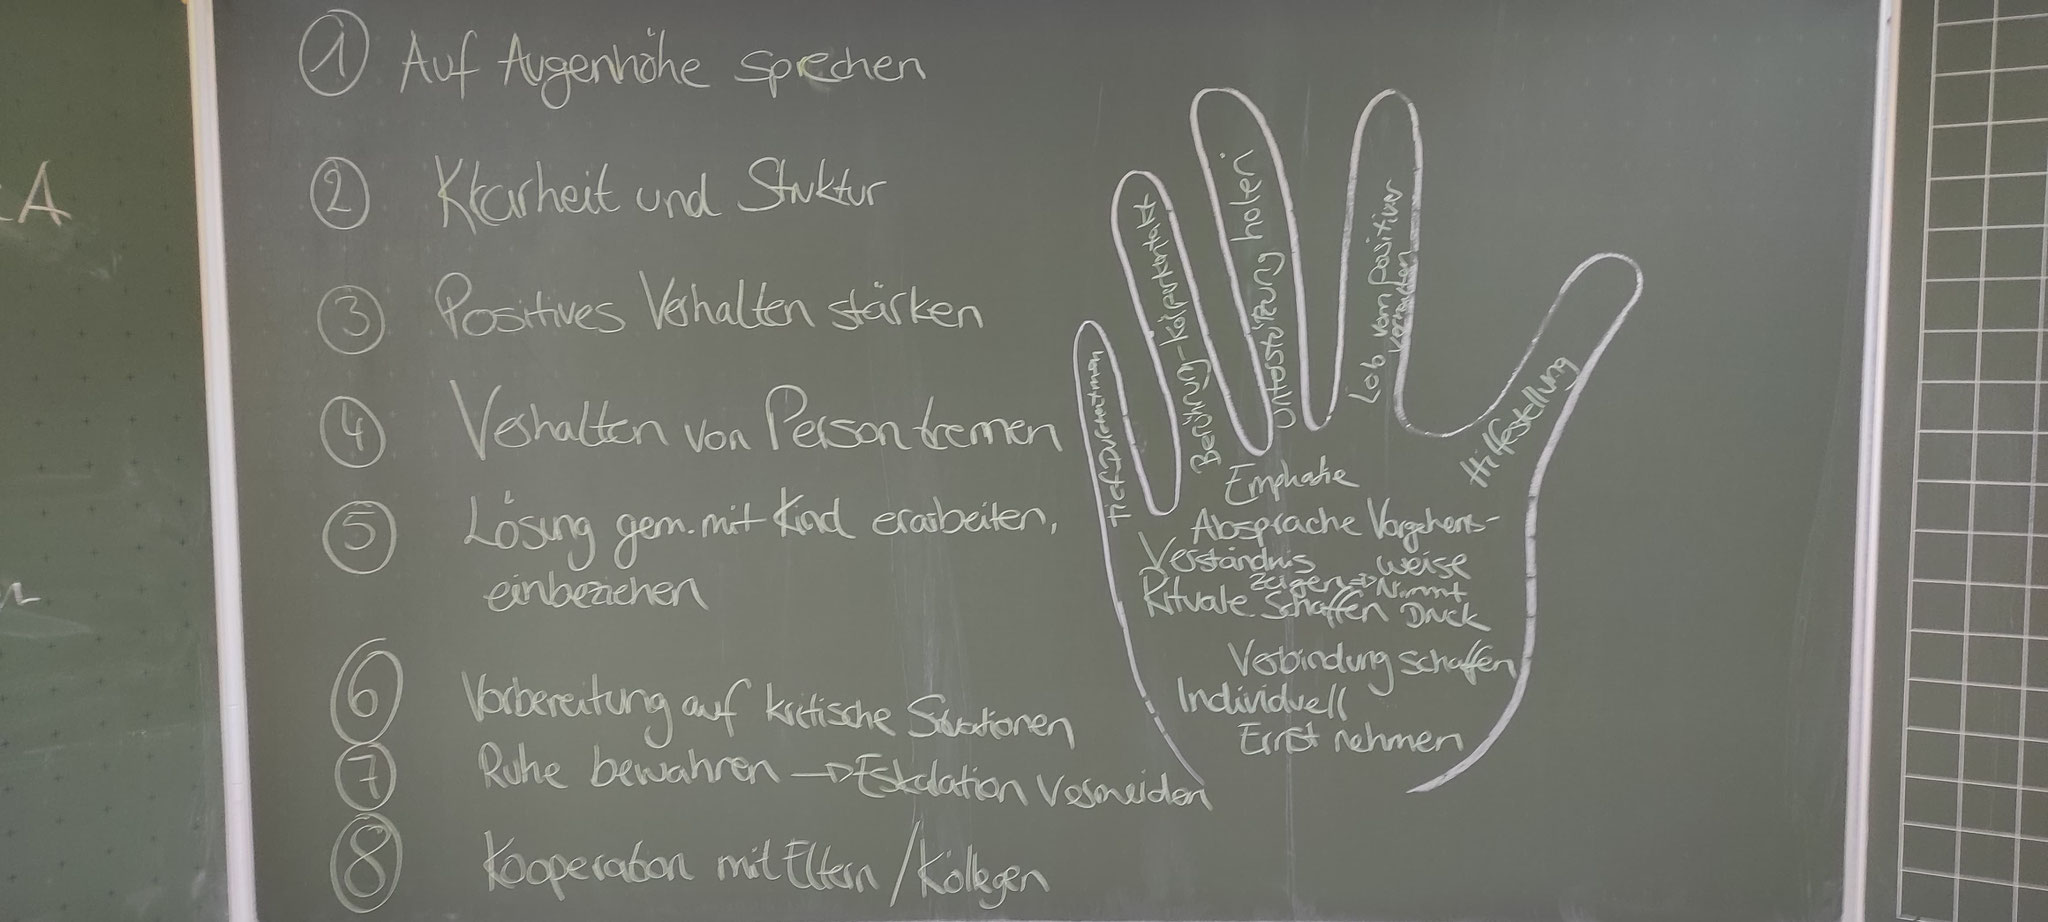 ① Auf Augenhöhe sprechen
② Klarheit und Struktur
③ Positives Verhalten stärken
④ Verhalten von Person trennen
⑤ Lösung gem. mit Kind erarbeiten,
einbeziehen
⑥ Vorbereitung auf kritische Situationen
⑦ Ruhe bewahren → Eskalation vermeiden
⑧ Kooperation mit Eltern / Kollegen
Tief Durchatmen
Berührung - Körperkontakt
Unterstützung holen
Lob vom positiven
Verhalten
Hilfestellung
Emphatie
Absprache Vorgehens-
weise
Verständnis
zeigen → Nimmt
Druck
Rituale schaffen
Verbindung schaffen
Individuell
Ernst nehmen
A